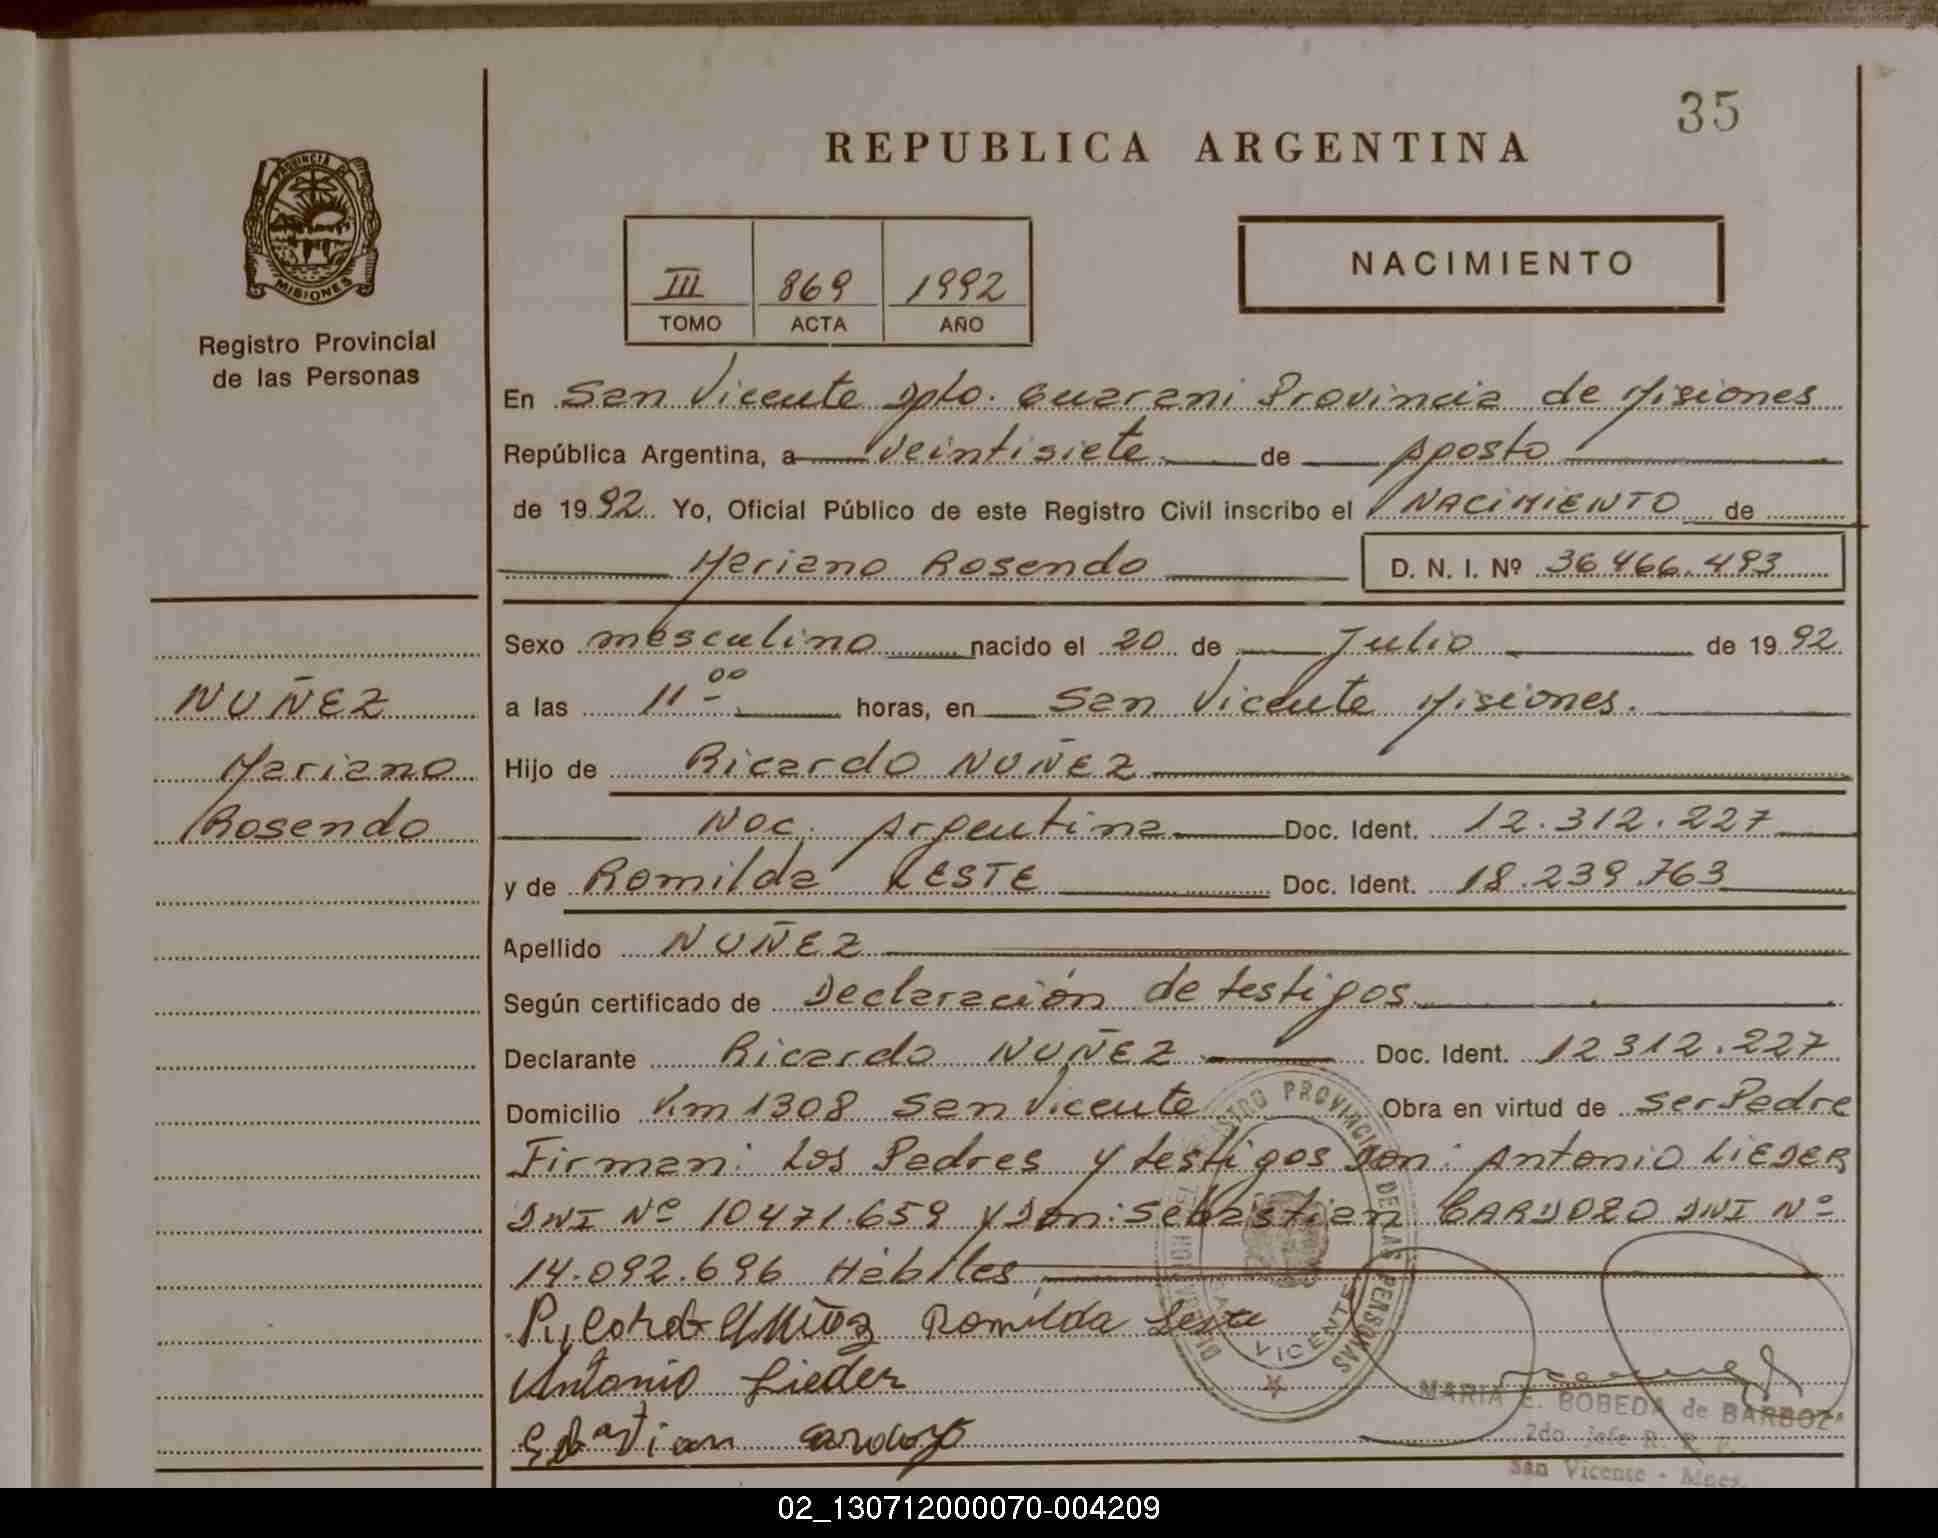 35
REPUBLICA ARGENTINA
PROVINCIA DE
MISIONES
Registro Provincial
de las Personas
III 869 1992
TOMO ACTA AÑO
NACIMIENTO
En San Vicente Dpto. Guarani Provincia de Misiones
República Argentina, a veintisiete de Agosto
de 1992. Yo, Oficial Público de este Registro Civil inscribo el NACIMIENTO de
Mariano Rosendo D. N. I. Nº 36.466.493
Sexo masculino nacido el 20 de Julio de 1992
NUÑEZ
a las 11 00 horas, en San Vicente Misiones.
Mariano
Hijo de Ricardo NUÑEZ
Rosendo
Nac. Argentina Doc. Ident. 12.312.227
y de Romilda LESTE Doc. Ident. 18.239.763
Apellido NUÑEZ
Según certificado de Declaración de testigos
Declarante Ricardo NUÑEZ Doc. Ident. 12312.227
Domicilio Km 1308 San Vicente Obra en virtud de ser Padre
Firman: Los Padres y testigos Don: Antonio LIEDER
DNI Nº 10471.659 y Don: Sebastian CARDOZO DNI Nº
14.092.696 Hábiles
Romilda Leste
Antonio Lieder
Sebastian
REGISTRO PROVINCIAL DE LAS PERSONAS
VICENTE
MARIA E. BOBEDA de BARBOZA
2do Jefe R. P. P.
San Vicente - Mnes.
02_130712000070-004209